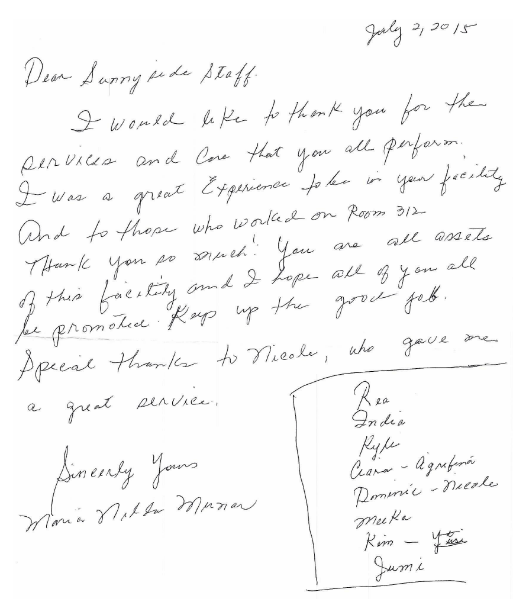 July 2, 2015
Dear Sunnyside Staff.
I would like to thank you for the
services and Care that you all perform.
I was a great Experience to be in your facility
And to those who worked on Room 312
Thank you so much! You are all assets
of this facility and I hope all of you all
be promoted. Keep up the good job.
Special thanks to Nicole, who gave me
a great service.
Sincerly Yours
Maria Nilda Munar
Rea
India
Kyle
Ciara - Agrifina
Dominic - Nicole
Meeka
Kim -
Jumi